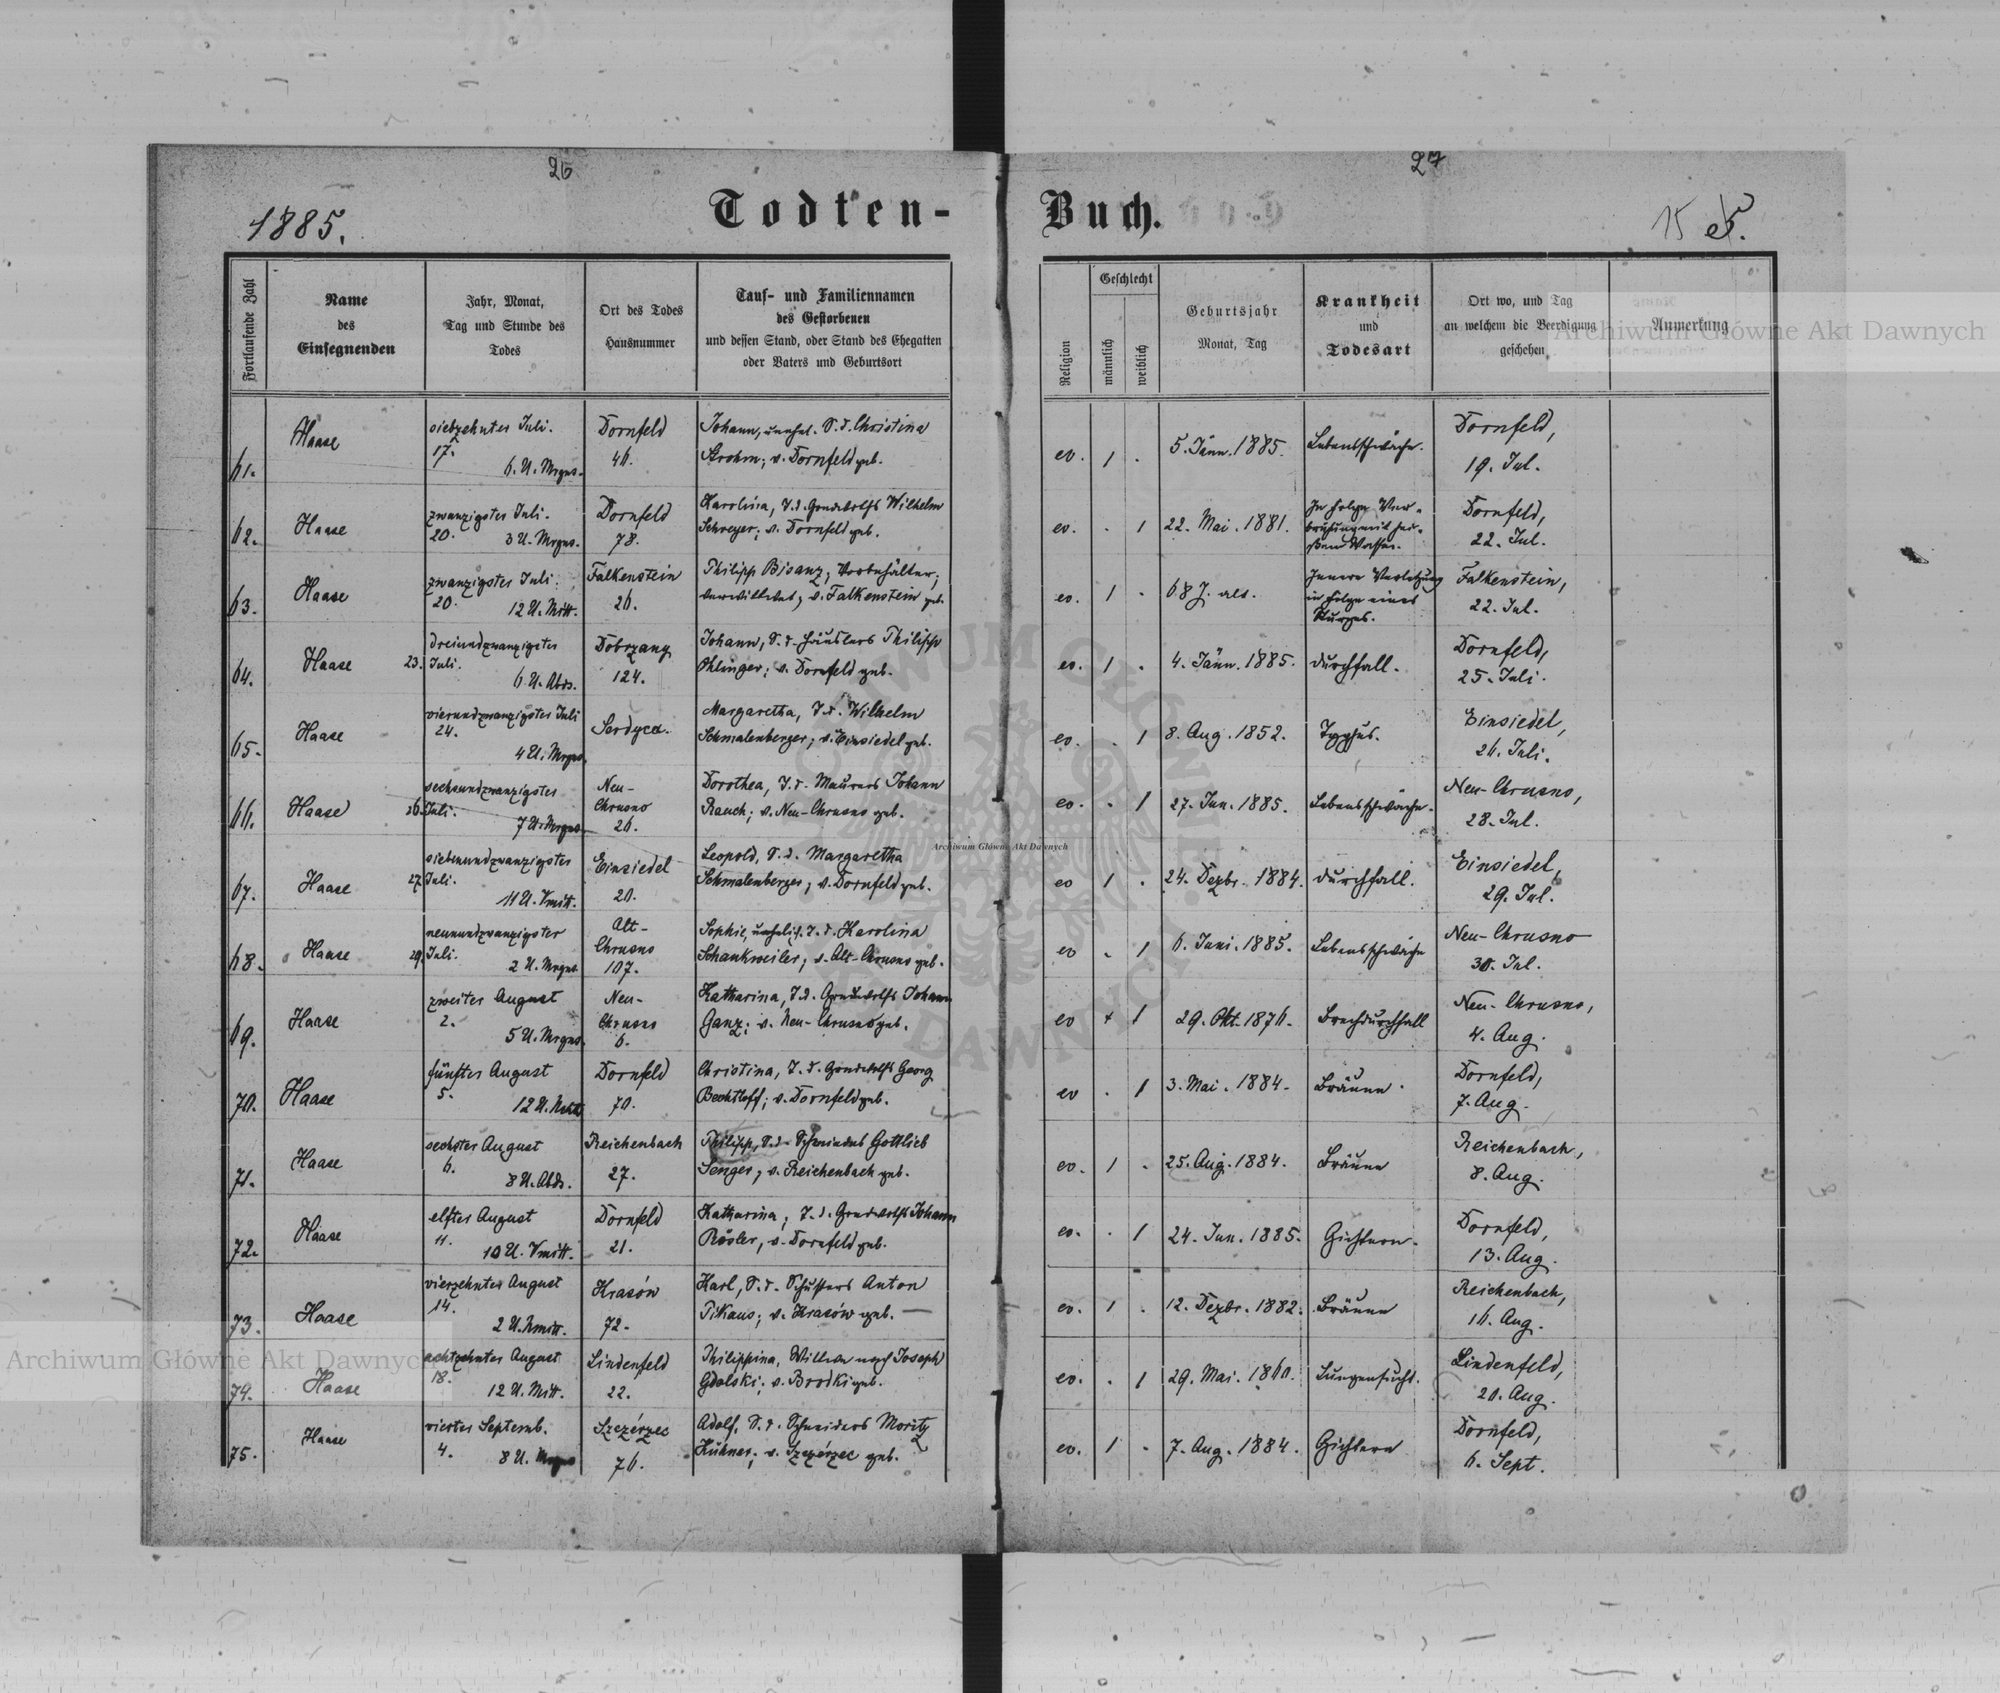 26
27
Todten-Buch.
1885.
15
Fortlaufende Zahl
Name
des
Einsegnenden
Jahr, Monat,
Tag und Stunde des
Todes
Ort des Todes
Hausnummer
Tauf- und Familiennamen
des Gestorbenen
und dessen Stand, oder Stand des Ehegatten
oder Vaters und Geburtsort
Religion
Geschlecht
männlich
weiblich
Geburtsjahr
Monat, Tag
Krankheit
und
Todesart
Ort wo, und Tag
an welchem die Beerdigung
geschehen
Anmerkung
61.
Haase
siebzehnter Juli.
17.
6. U. Mrgns.
Dornfeld
46.
Johann, unehel. S. d. Christina
Strohm; v. Dornfeld geb.
ev. 1 .
5. Jänn. 1885.
Lebensschwäche.
Dornfeld,
19. Jul.
62.
Haase
zwanzigster Juli.
20.
3 U. Mrgns.
Dornfeld
78.
Karolina, T. d. Grundwirths Wilhelm
Schreyer; v. Dornfeld geb.
ev. . 1
22. Mai. 1881.
In Folge Ver-
brühung mit hei-
ßem Wasser.
Dornfeld,
22. Jul.
63.
Haase
zwanzigster Juli.
20.
12 U. Mitt.
Falkenstein
26.
Philipp Bisanz; Vorbehälter;
verwittwet; v. Falkenstein geb.
ev. 1 .
68 J. alt.
Innere Verletzung
in Folge eines
Sturzes.
Falkenstein,
22. Jul.
64.
Haase
dreiundzwanzigster
23. Juli.
6 U. Abds.
Dobrzany
124.
Johann, S. d. Häuslers Philipp
Ohlinger; v. Dornfeld geb.
ev. 1 .
4. Jänn. 1885.
Durchfall.
Dornfeld,
25. Juli.
65.
Haase
vierundzwanzigster Juli
24.
4 U. Mrgns.
Serdyca.
Margaretha, T. d. Wilhelm
Schmalenberger; v. Einsiedel geb.
ev. . 1
8. Aug. 1852.
Typhus.
Einsiedel,
26. Juli.
66.
Haase
sechsundzwanzigster
26. Juli.
7 U. Mrgns.
Neu-
Chrusno
26.
Dorothea, T. d. Maurers Johann
Rauch; v. Neu-Chrusno geb.
ev. . 1
27. Jun. 1885.
Lebensschwäche.
Neu-Chrusno,
28. Jul.
67.
Haase
siebenundzwanzigster
27. Juli.
11 U. Vmitt.
Einsiedel
20.
Leopold, S. d. Margaretha
Schmalenberger; v. Dornfeld geb.
ev 1 .
24. Dezbr. 1884.
Durchfall.
Einsiedel,
29. Jul.
68.
Haase
neunundzwanzigster
29. Juli.
2 U. Mrgns.
Alt-
Chrusno
107.
Sophie, unehelich. T. d. Karolina
Schankweiler; v. Alt-Chrusno geb.
ev . 1
6. Juni. 1885.
Lebensschwäche
Neu-Chrusno
30. Jul.
69.
Haase
zweiter August
2.
5 U. Mrgns.
Neu-
Chrusno
6.
Katharina, T. d. Grundwirths Johann
Ganz; v. Neu-Chrusno geb.
ev + 1
29. Okt. 1876.
Brechdurchfall
Neu-Chrusno,
4. Aug.
70.
Haase
fünfter August
5.
12 U. Nchts
Dornfeld
70.
Christina, T. d. Grundwirths Georg
Bechtloff; v. Dornfeld geb.
ev . 1
3. Mai. 1884.
Bräune.
Dornfeld,
7. Aug.
71.
Haase
sechster August
6.
8 U. Abds.
Reichenbach
27.
Philipp, S. d. Schmiedes Gottlieb
Senger; v. Reichenbach geb.
ev. 1 .
25. Aug. 1884.
Bräune
Reichenbach,
8. Aug.
72.
Haase
elfter August
11.
10 U. Vmitt.
Dornfeld
21.
Katharina; T. d. Grundwirths Johann
Rösler, v. Dornfeld geb.
ev. . 1
24. Jun. 1885.
Gichtern.
Dornfeld,
13. Aug.
73.
Haase
vierzehnter August
14.
2 U. Nmitt.
Krasów
72.
Karl, S. d. Schusters Anton
Pikaus; v. Krasów geb. —
ev. 1 .
12. Dezbr. 1882.
Bräune
Reichenbach,
16. Aug.
74.
Haase
achtzehnter August
18.
12 U. Mitt.
Lindenfeld
22.
Philippina, Wittwe nach Joseph
Gdolski; v. Brodki geb.
ev. . 1
29. Mai. 1860.
Lungensucht.
Lindenfeld,
20. Aug.
75.
Haase
vierter Septemb.
4.
8 U. Mrgns
Szczérzec
76.
Adolf, S. d. Schneiders Moritz
Kühner; v. Szczérzec geb.
ev. 1 .
7. Aug. 1884.
Gichtern
Dornfeld,
6. Sept.
Archiwum Główne Akt Dawnych
Archiwum Główne Akt Dawnych
Archiwum Główne Akt Dawnych
ARCHIWUM GŁÓWNE AKT DAWNYCH